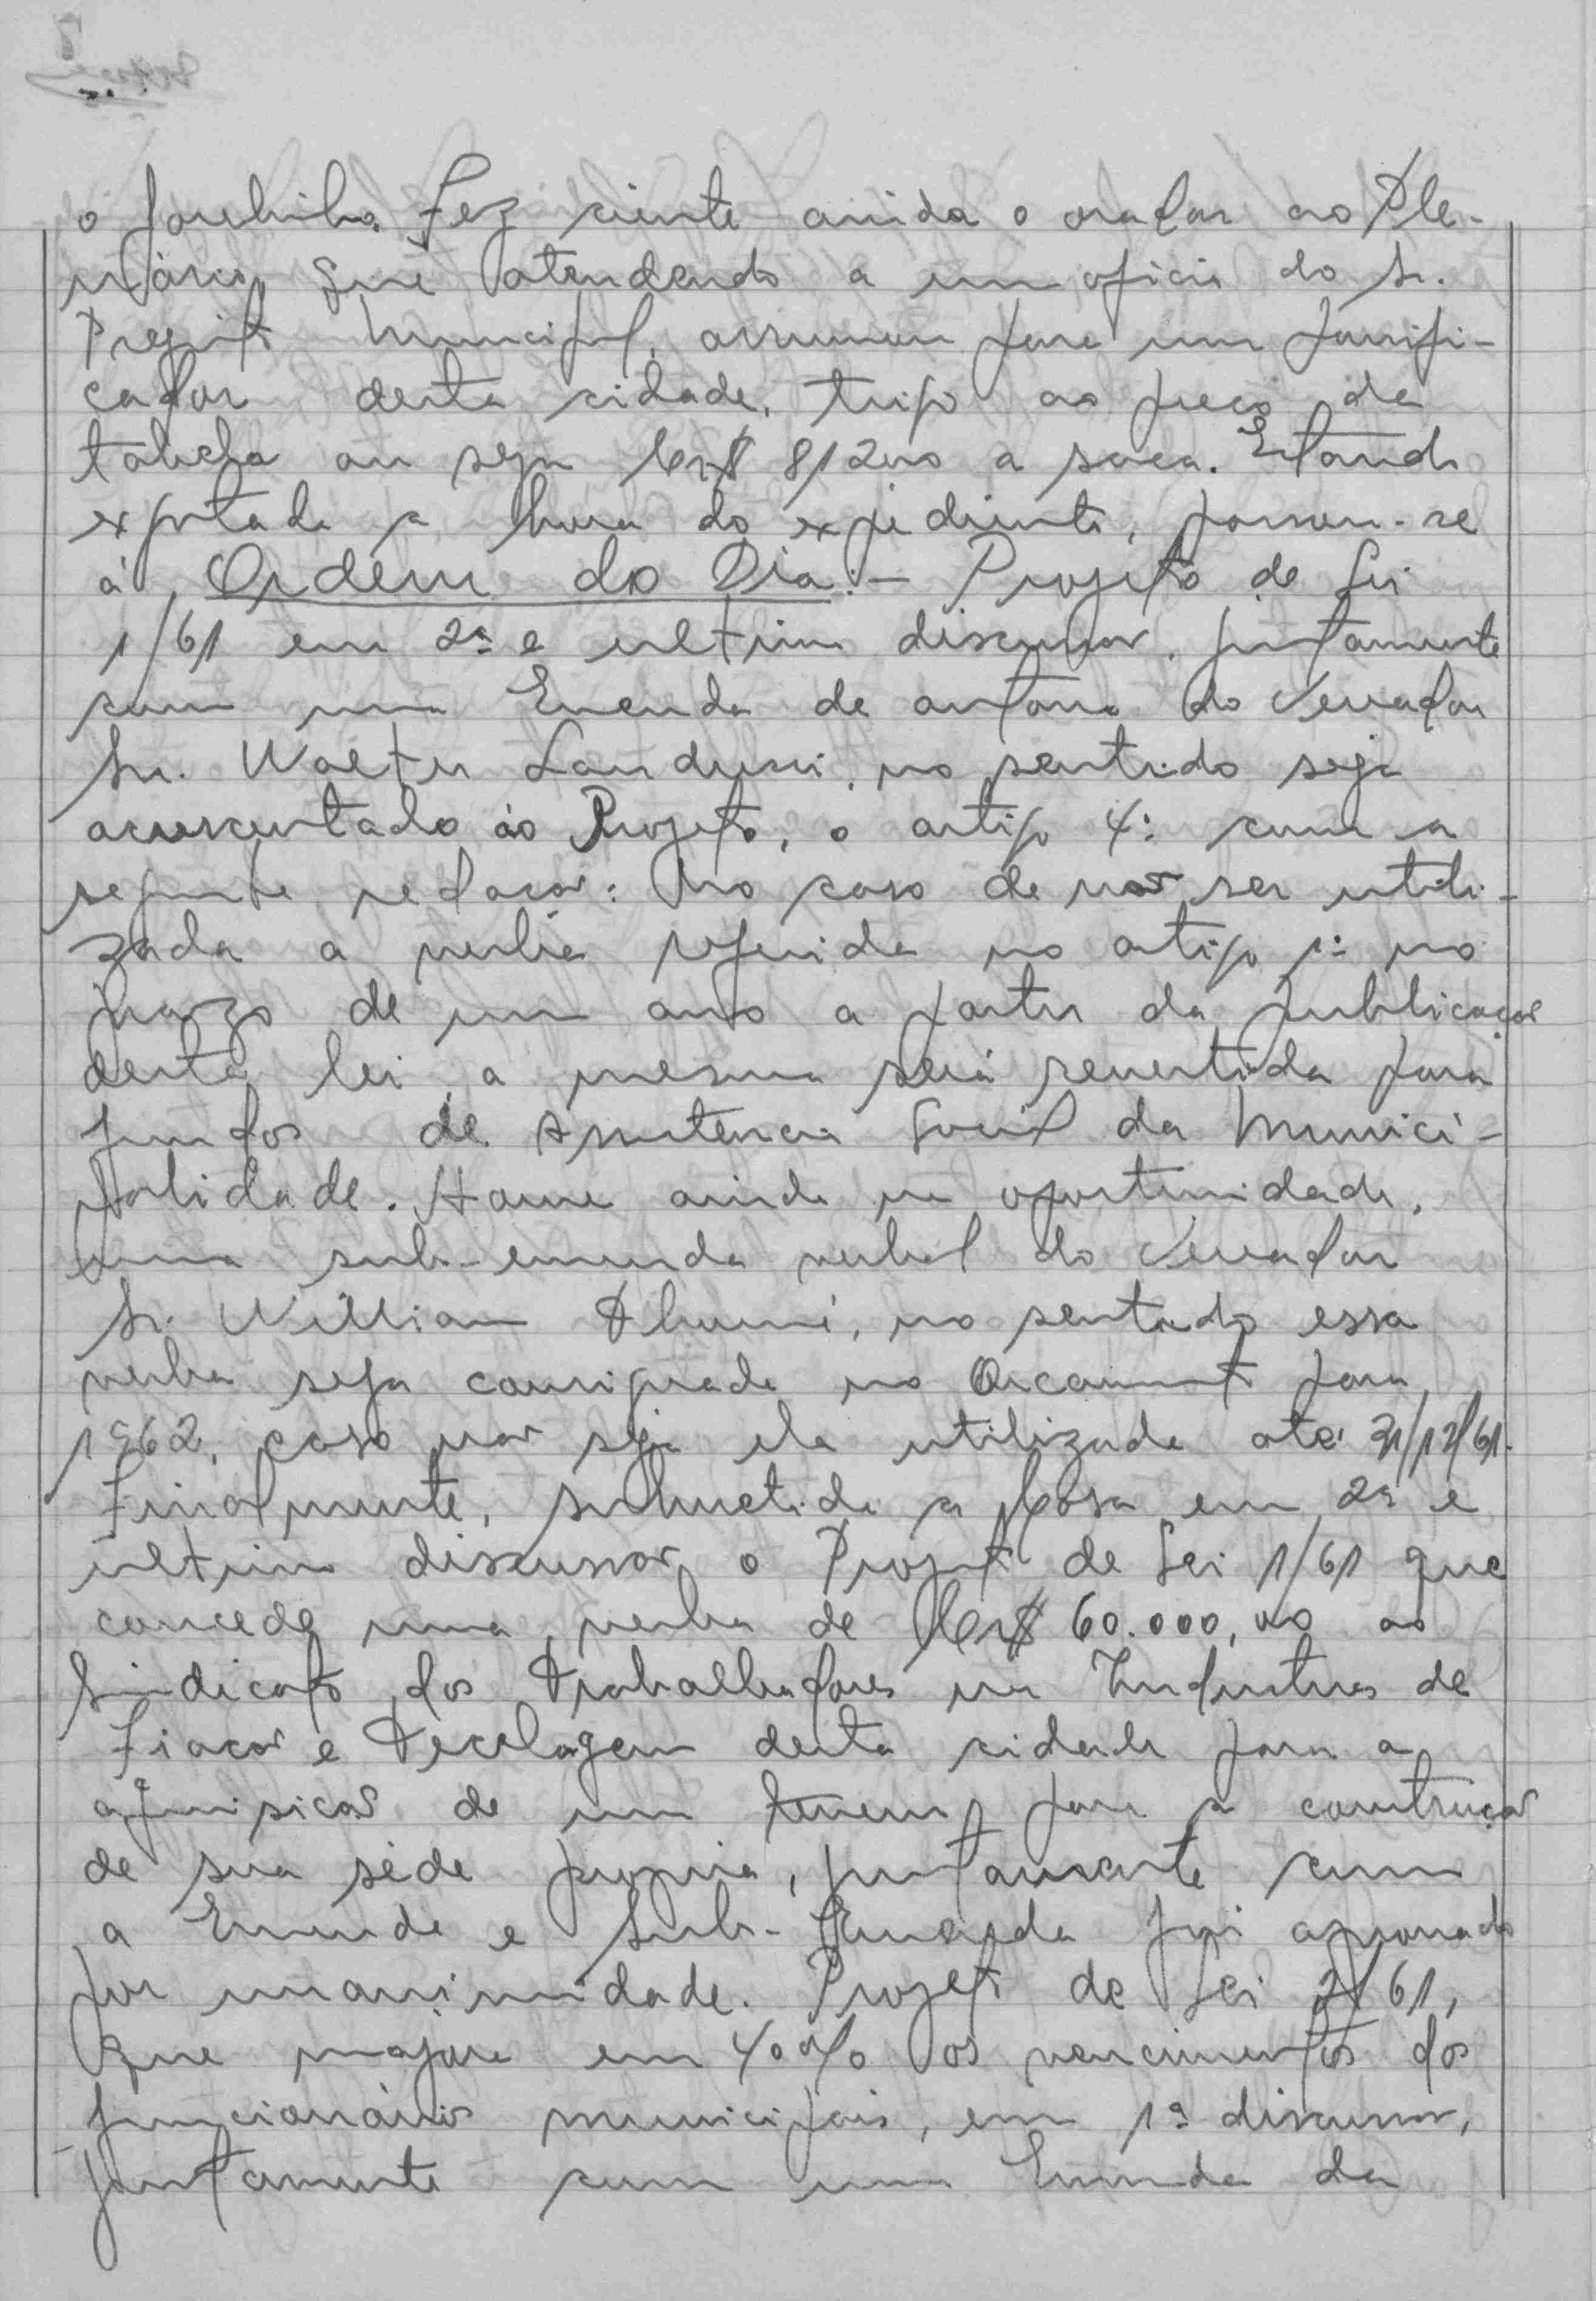 o parelinho. Fez ciente ainda o orador ao Ple-
nário, que atendendo a um oficio do Sr.
Prefeito Municipal, arrumou para um panifi-
cador desta cidade, trigo ao preço da
tabela ou seja Cr$ 812,00 a saca. Estando
exgotada a hora do expediente, passou-se
á Ordem do Dia:- Projeto de Lei
1/61 em 2ª e ultima discussão, juntamente
com uma Emenda de autoria do Vereador
Sr. Walter Landucci, no sentido seja
acrescentado ao Projeto, o artigo 4º com a
seguinte redação: No caso de não ser utili-
zada a verba referida no artigo 1º no
prazo de um ano a partir da publicação
desta lei, a mesma será revertida para
fundos de Assistencia Social da Munici-
palidade. Houve ainda na oportunidade,
uma sub-emenda verbal do Vereador
Sr. William, no sentido essa
verba seja consignada no Orcamento para
1962, caso não seja ela utilizada até 31/12/61.
Finalmente, submetido a Casa em 2ª e
ultima discussão o Projeto de Lei 1/61 que
concede uma verba de Cr$ 60.000,00 ao
Sindicato dos Trabalhadores na Industrias de
Fiação e Tecelagem desta cidade para a
aquisição de um terreno para a construção
de sua séde propria, juntamente com
a Emenda e Sub-Emenda foi aprovado
por unanimidade. Projeto de Lei 2/61,
que majora em 40% os vencimentos dos
funcionários municipais, em 1ª discussão,
juntamente com uma Emenda da